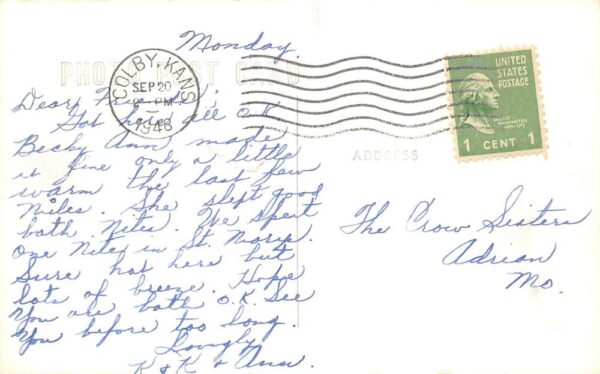 Monday.
PHOTO POST CARD
COLBY, KANS.
SEP 20
PM
1948
UNITED
STATES
POSTAGE
1 CENT 1
ADDRESS
Dear
Got here all O.K
Becky Ann made
it fine only a little
warm the last few
miles. She slept good
both nites. We spent
One Nite in St. Marys.
Sure hot here but
lots of breeze. Hope
You are both O.K. See
You before too long.
Lovingly
K & K & Ann.
The Crow Sisters
Adrian
Mo.